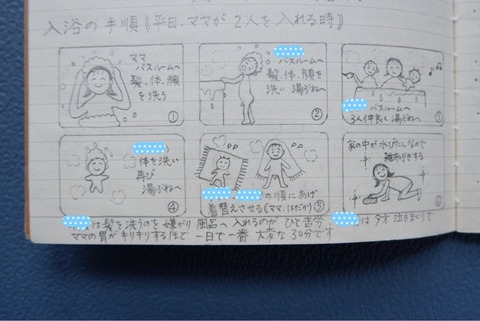 入浴の手順《平日、ママが2人を入れる時》
ママ
バスルームへ
髪、体、顔
を洗う
①
バスルームへ
髪、体、顔を
洗い 湯ぶねへ
②
バスルームへ
3人仲良く湯ぶねへ
③
体を洗い
再び
湯ぶねへ
④
の順にあげ
着替えさせる(ママ、はだか)
⑤
家の中が水びたしなので
雑巾がけする
⑥
は髪を洗うのを嫌がり 風呂へ入れるのが ひと苦労
は夕方泣きまくりで
ママの胃がキリキリするほど 一日で一番 大変な30分です